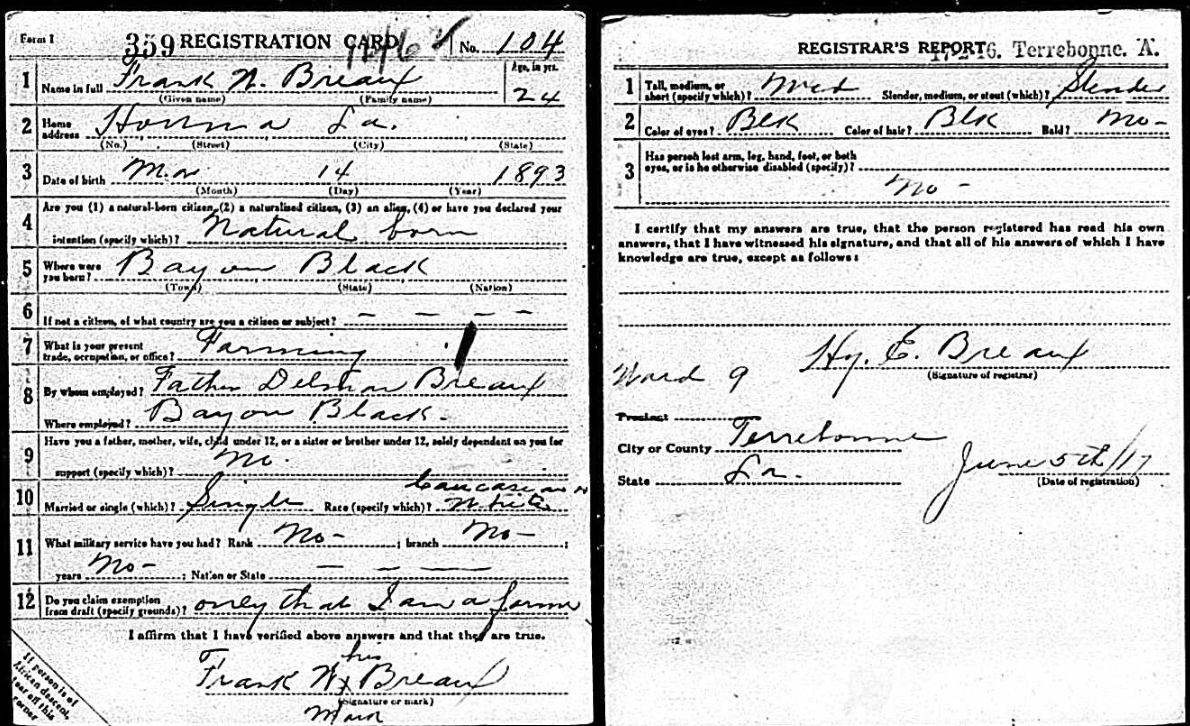 Form 1 359 REGISTRATION CARD No. 104
1 Name in full Frank W. Breaux Age, in yrs. 24
(Given name) (Family name)
2 Home address Houma La.
(No.) (Street) (City) (State)
3 Date of birth Mar 14 1893
(Month) (Day) (Year)
4 Are you (1) a natural-born citizen, (2) a naturalized citizen, (3) an alien, (4) or have you declared your
intention (specify which)? Natural born
5 Where were you born? Bayou Black
(Town) (State) (Nation)
6 If not a citizen, of what country are you a citizen or subject? – – – –
7 What is your present trade, occupation, or office? Farming
8 By whom employed? Father Delmar Breaux
Where employed? Bayou Black.
9 Have you a father, mother, wife, child under 12, or a sister or brother under 12, solely dependent on you for
support (specify which)? No.
10 Married or single (which)? Single Race (specify which)? Caucasian White
11 What military service have you had? Rank No- ; branch No- ;
years No- ; Nation or State – – –
12 Do you claim exemption from draft (specify grounds)? only that I am a farmer
I affirm that I have verified above answers and that they are true.
his
Frank W x Breaux
(Signature or mark)
Mark
If person is of
African descent,
tear off this
corner
REGISTRAR'S REPORT 17-2-16. Terrebonne. A.
1 Tall, medium, or short (specify which)? Med Slender, medium, or stout (which)? Slender
2 Color of eyes? Blk Color of hair? Blk Bald? No-
3 Has person lost arm, leg, hand, foot, or both
eyes, or is he otherwise disabled (specify)?
No -
I certify that my answers are true, that the person registered has read his own
answers, that I have witnessed his signature, and that all of his answers of which I have
knowledge are true, except as follows:
Hy. E. Breaux
(Signature of registrar)
Ward 9
Precinct
City or County Terrebonne
State La.
June 5th/17
(Date of registration)